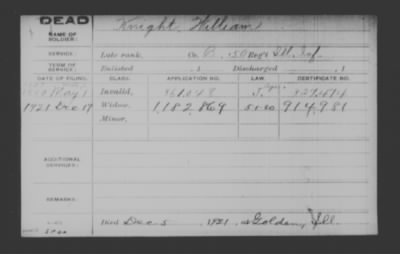 DEAD
NAME OF SOLDIER:
Knight, William
SERVICE:
Late rank, Co. B, 50 Reg't Ill. Inf.
TERM OF SERVICE:
Enlisted , 1 Discharged , 1
DATE OF FILING. CLASS. APPLICATION NO. LAW. CERTIFICATE NO.
May 1 Invalid,
1921 Dec 17 Widow, 1,182,869 914,981
Minor,
ADDITIONAL SERVICES:
REMARKS:
Died Dec 5 1921, at Golden, Ill.